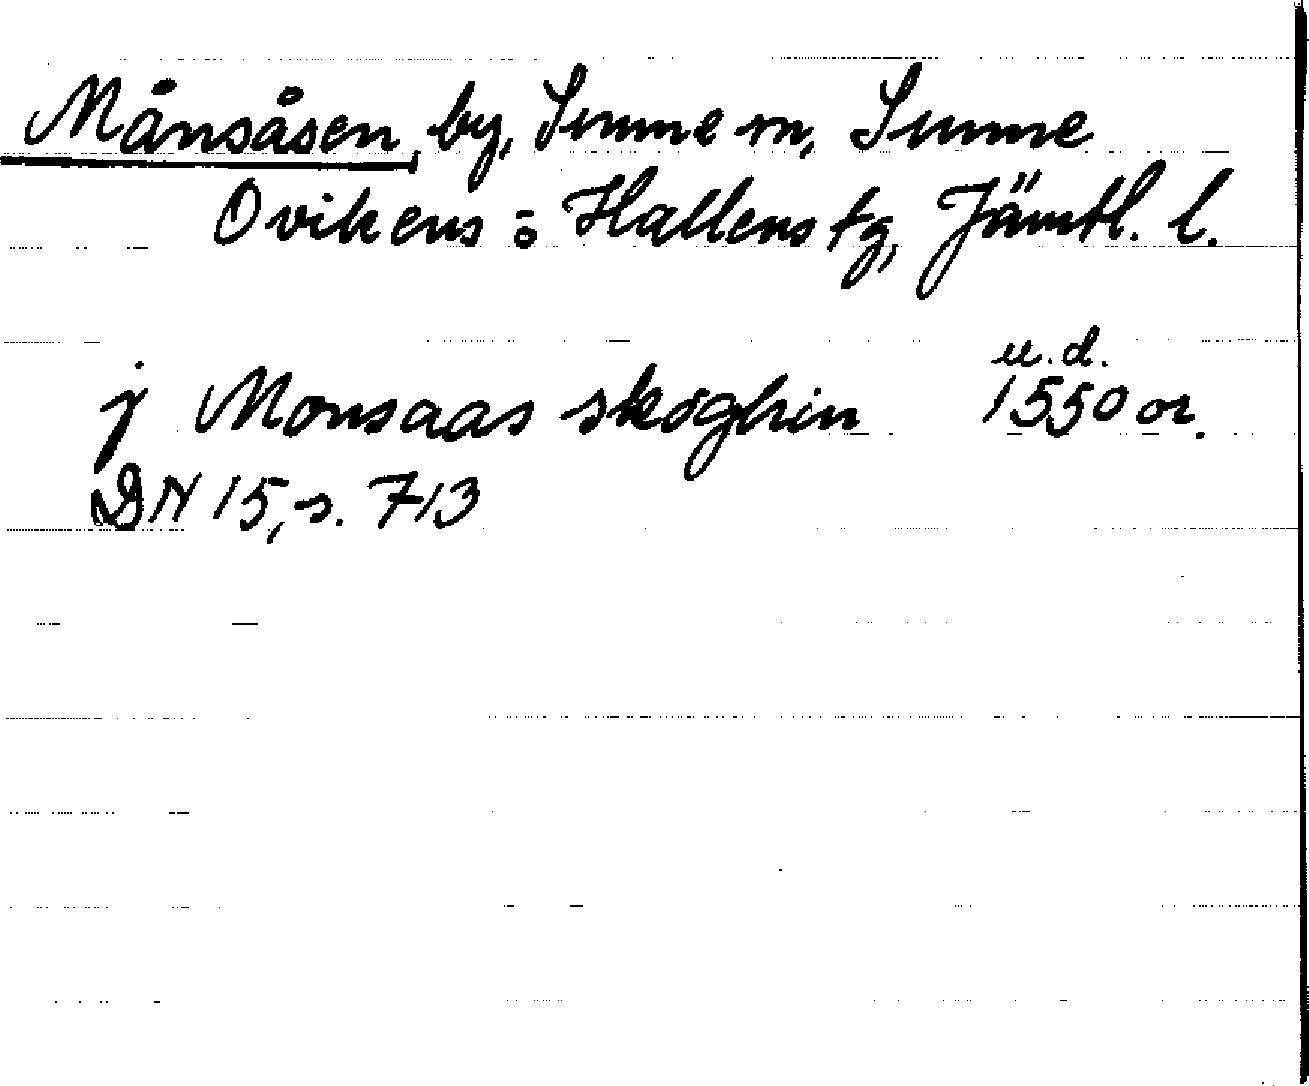 Månsåsen, by, Sunne sn, Sunne
Ovikens o Hallens tg, Jämtl. l.
u.d.
j Monsaas skoghin 1550 or.
DN 15, s. 713